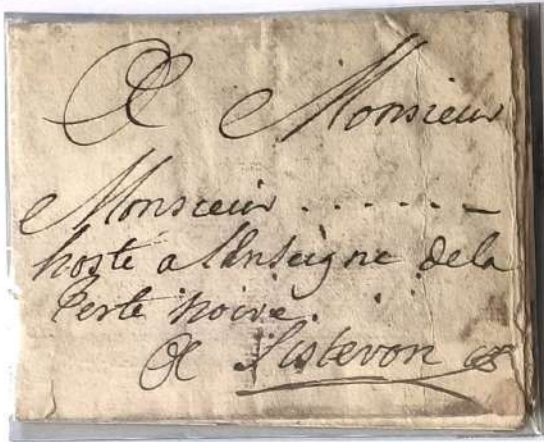 A Monsieur
Monsieur . . . . . . . –
hoste a l'Enseigne dela
Perle noire . . .
A Sisteron